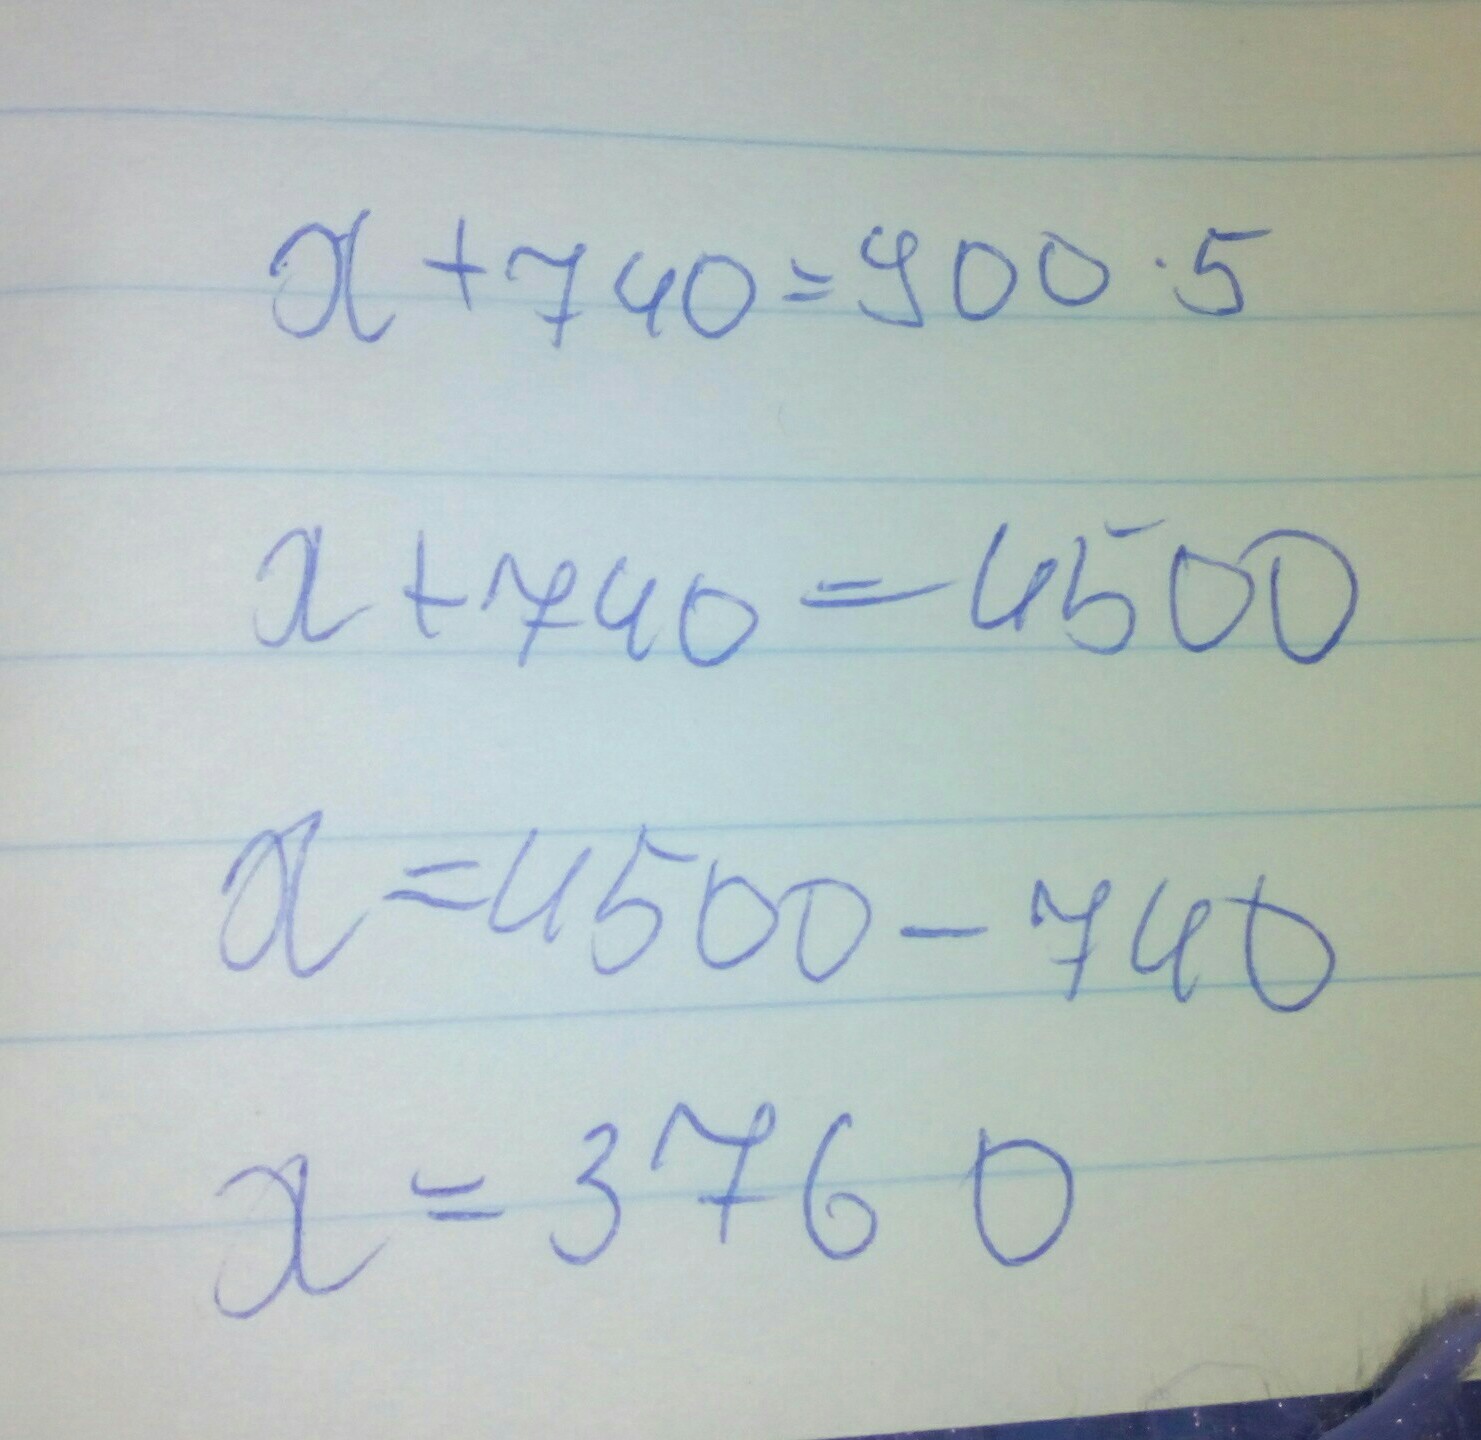 x + 740 = 900 · 5
x + 740 = 4500
x = 4500 - 740
x = 3760